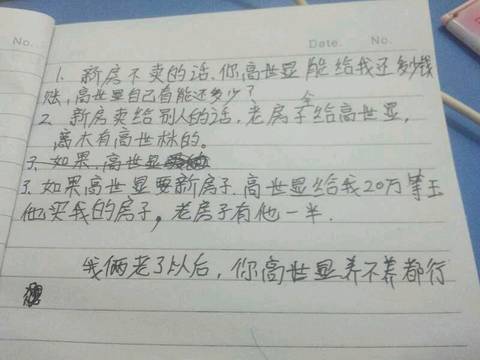 No.
Date.
No.
1. 新房不卖的话,你高世显能给我还多少钱
账,高世显自己有能还多少?
2. 新房卖给别人的话,老房子全给高世显,
离木有高世林的。
3. 如果高世显
3. 如果高世显要新房子.高世显给我20万等于
他买我的房子,老房子有他一半.
我俩老了以后,你高世显养不养都行